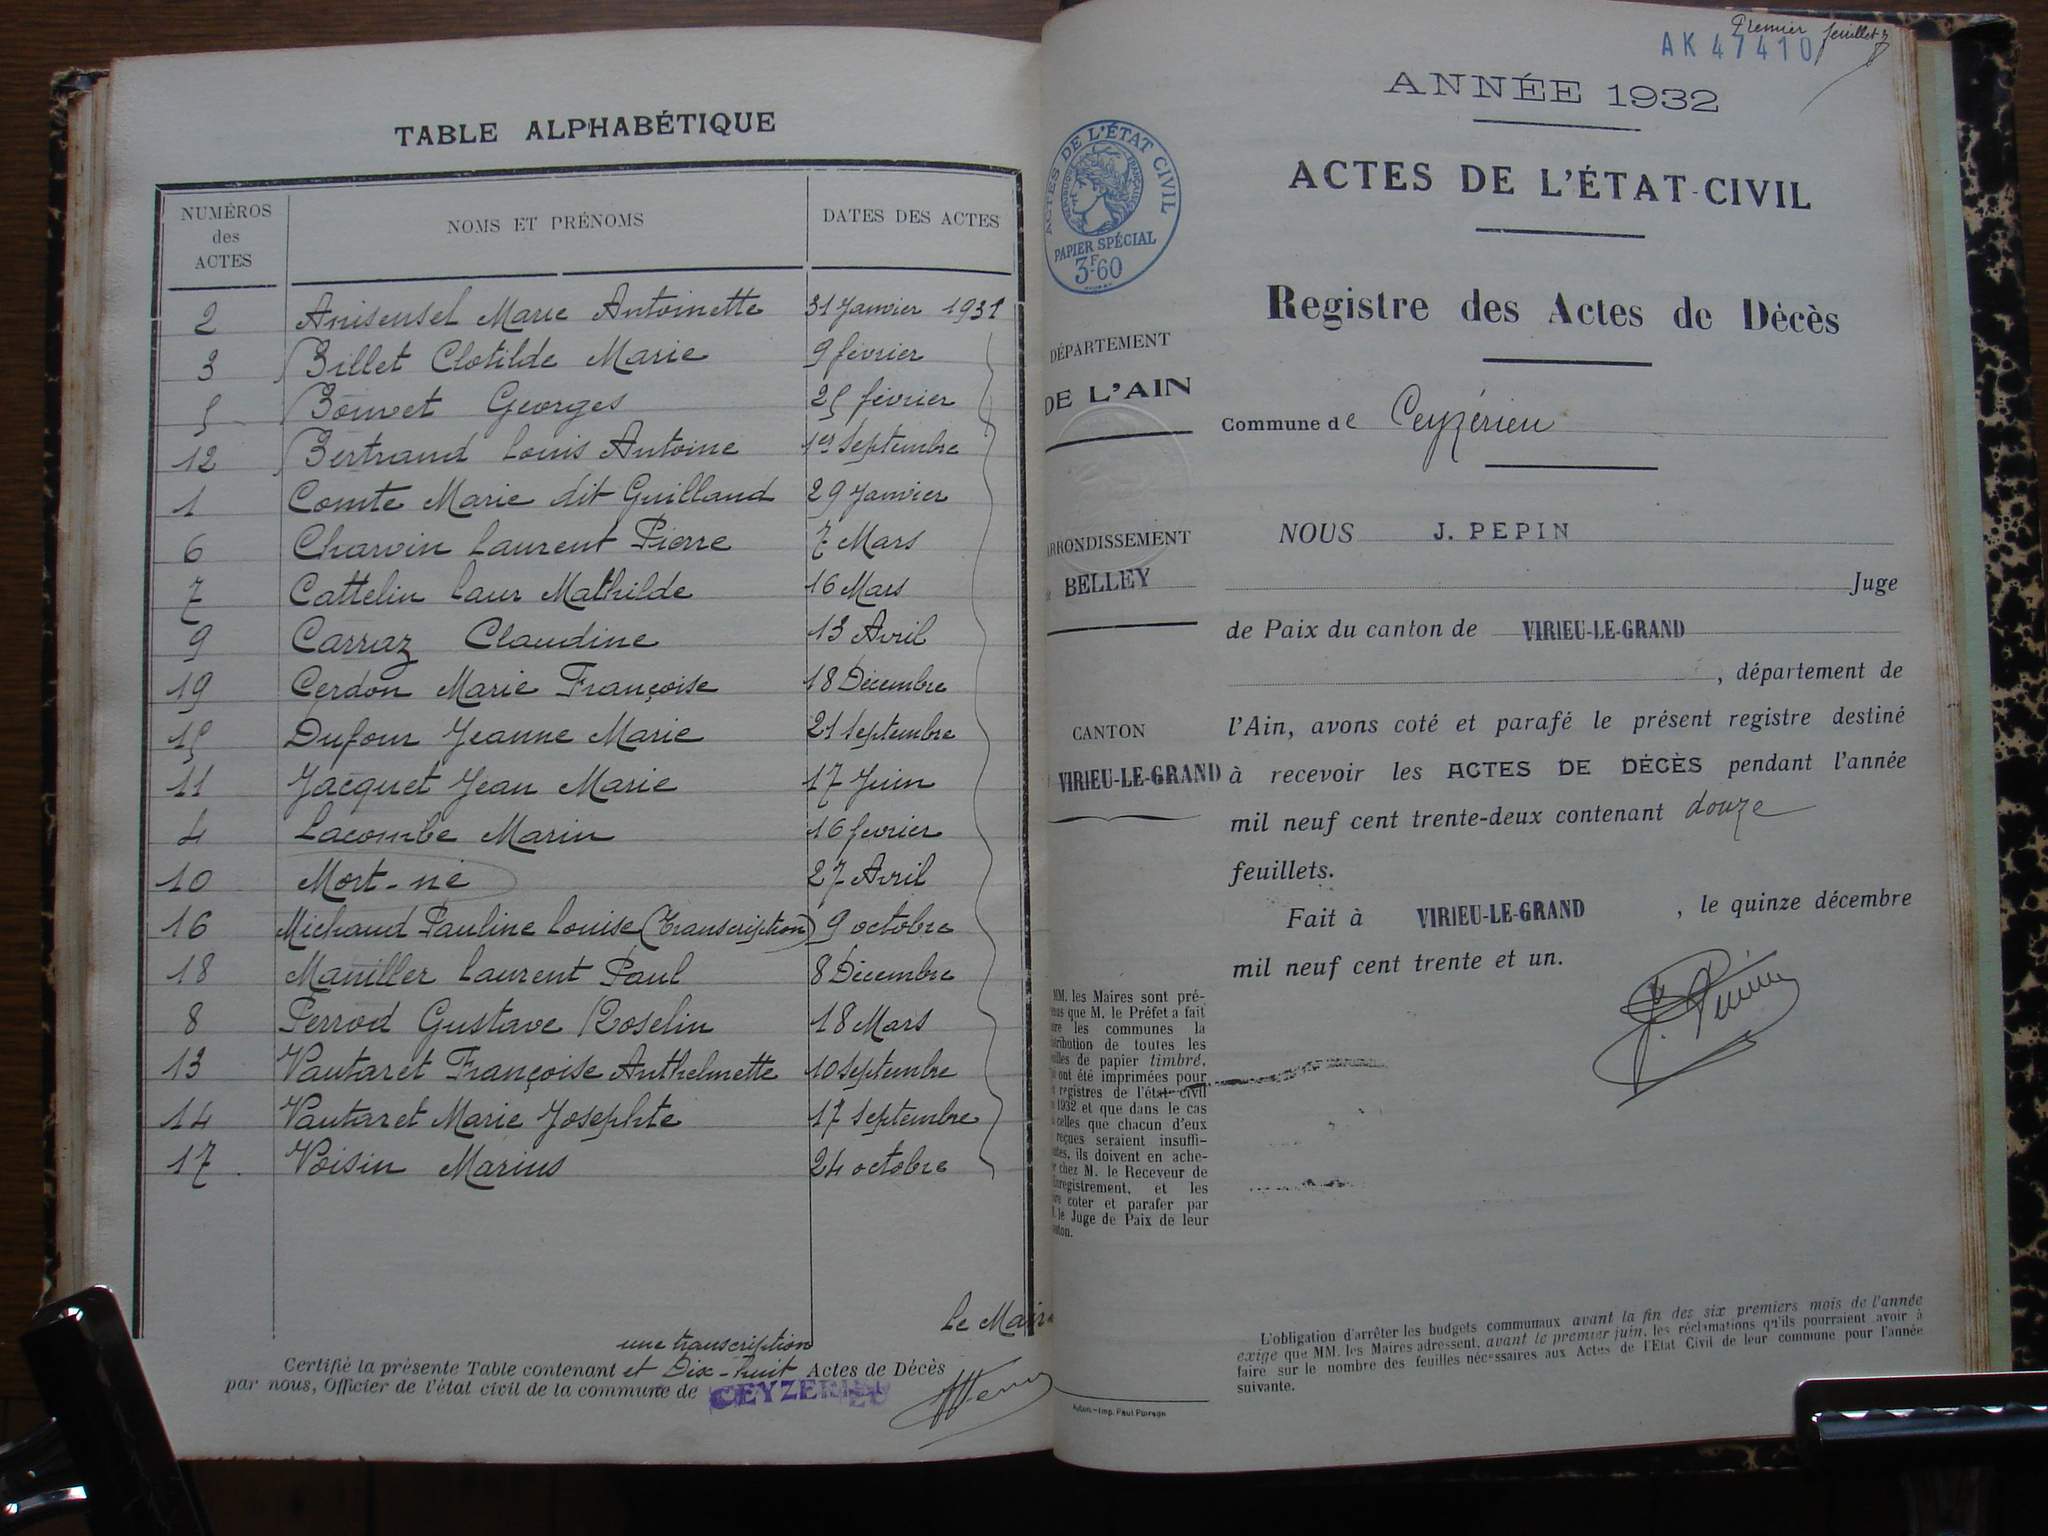 TABLE ALPHABÉTIQUE
NUMÉROS des ACTES NOMS ET PRÉNOMS DATES DES ACTES
2 Anisensel Marie Antoinette 31 Janvier 1931
3 Billet Clotilde Marie 9 février
5 Bouvet Georges 25 février
12 Bertrand Louis Antoine 1er Septembre
1 Comte Marie dit Guilland 29 Janvier
6 Charvin Laurent Pierre 7 Mars
7 Cattelin Laur Mathilde 16 Mars
9 Carraz Claudine 13 Avril
19 Cerdon Marie Françoise 18 Décembre
15 Dufour Jeanne Marie 21 Septembre
11 Jacquet Jean Marie 17 Juin
4 Lacombe Marin 16 février
10 Mort-né 27 Avril
16 Michaud Pauline Louise (Transcription) 9 octobre
18 Maniller Laurent Paul 8 Décembre
8 Perrod Gustave Roselin 18 Mars
13 Vautaret Françoise Anthelmette 10 Septembre
14 Vautaret Marie Josephte 17 Septembre
17 Voisin Marius 24 octobre
Le Maire
une transcription
Certifié la présente Table contenant et Dix-huit Actes de Décès
par nous, Officier de l'état civil de la commune de CEYZERIEU
Premier feuillet
AK 47410
ANNÉE 1932
ACTES DE L'ÉTAT CIVIL
RÉPUBLIQUE FRANÇAISE
PAPIER SPÉCIAL
3F60
ACTES DE L'ÉTAT-CIVIL
Registre des Actes de Décès
DÉPARTEMENT
DE L'AIN
Commune de Ceyzérieu
ARRONDISSEMENT
BELLEY
CANTON
VIRIEU-LE-GRAND
NOUS J. PEPIN
Juge
de Paix du canton de VIRIEU-LE-GRAND
, département de
l'Ain, avons coté et parafé le présent registre destiné
à recevoir les ACTES DE DÉCÈS pendant l'année
mil neuf cent trente-deux contenant douze
feuillets.
Fait à VIRIEU-LE-GRAND , le quinze décembre
mil neuf cent trente et un.
MM. les Maires sont pré-
que M. le Préfet a fait
les communes la
distribution de toutes les
feuilles de papier timbré,
ont été imprimées pour
registres de l'état civil
1932 et que dans le cas
celles que chacun d'eux
reçues seraient insuffi-
santes, ils doivent en ache-
chez M. le Receveur de
l'Enregistrement, et les
coter et parafer par
le Juge de Paix de leur
canton.
L'obligation d'arrêter les budgets communaux avant la fin des six premiers mois de l'année
exige que MM. les Maires adressent, avant le premier juin, les réclamations qu'ils pourraient avoir à
faire sur le nombre des feuilles nécessaires aux Actes de l'Etat Civil de leur commune pour l'année
suivante.
Imp. Paul